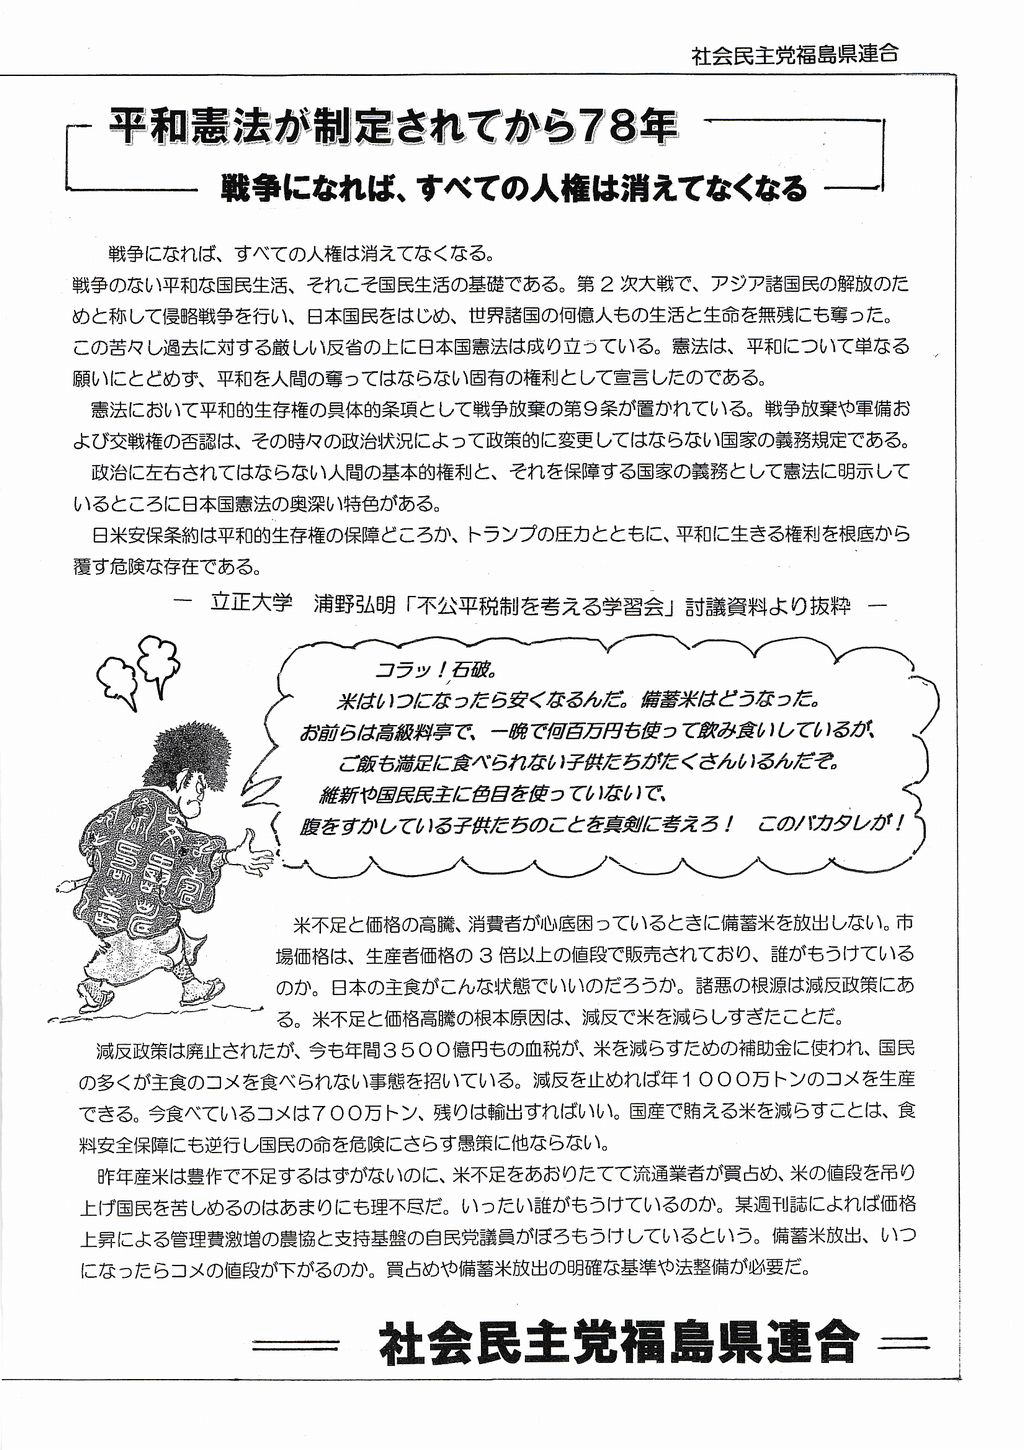 社会民主党福島県連合
平和憲法が制定されてから78年
戦争になれば、すべての人権は消えてなくなる
戦争になれば、すべての人権は消えてなくなる。
戦争のない平和な国民生活、それこそ国民生活の基礎である。第２次大戦で、アジア諸国民の解放のた
めと称して侵略戦争を行い、日本国民をはじめ、世界諸国の何億人もの生活と生命を無残にも奪った。
この苦々し過去に対する厳しい反省の上に日本国憲法は成り立っている。憲法は、平和について単なる
願いにとどめず、平和を人間の奪ってはならない固有の権利として宣言したのである。
憲法において平和的生存権の具体的条項として戦争放棄の第９条が置かれている。戦争放棄や軍備お
よび交戦権の否認は、その時々の政治状況によって政策的に変更してはならない国家の義務規定である。
政治に左右されてはならない人間の基本的権利と、それを保障する国家の義務として憲法に明示して
いるところに日本国憲法の奥深い特色がある。
日米安保条約は平和的生存権の保障どころか、トランプの圧力とともに、平和に生きる権利を根底から
覆す危険な存在である。
― 立正大学　浦野弘明「不公平税制を考える学習会」討議資料より抜粋 ―
コラッ！石破。
米はいつになったら安くなるんだ。備蓄米はどうなった。
お前らは高級料亭で、一晩で何百万円も使って飲み食いしているが、
ご飯も満足に食べられない子供たちがたくさんいるんだぞ。
維新や国民民主に色目を使っていないで、
腹をすかしている子供たちのことを真剣に考えろ！　このバカタレが！
米不足と価格の高騰、消費者が心底困っているときに備蓄米を放出しない。市
場価格は、生産者価格の３倍以上の値段で販売されており、誰がもうけている
のか。日本の主食がこんな状態でいいのだろうか。諸悪の根源は減反政策にあ
る。米不足と価格高騰の根本原因は、減反で米を減らしすぎたことだ。
減反政策は廃止されたが、今も年間３５００億円もの血税が、米を減らすための補助金に使われ、国民
の多くが主食のコメを食べられない事態を招いている。減反を止めれば年１０００万トンのコメを生産
できる。今食べているコメは７００万トン、残りは輸出すればいい。国産で賄える米を減らすことは、食
料安全保障にも逆行し国民の命を危険にさらす愚策に他ならない。
昨年産米は豊作で不足するはずがないのに、米不足をあおりたてて流通業者が買占め、米の値段を吊り
上げ国民を苦しめるのはあまりにも理不尽だ。いったい誰がもうけているのか。某週刊誌によれば価格
上昇による管理費激増の農協と支持基盤の自民党議員がぼろもうけしているという。備蓄米放出、いつ
になったらコメの値段が下がるのか。買占めや備蓄米放出の明確な基準や法整備が必要だ。
社会民主党福島県連合